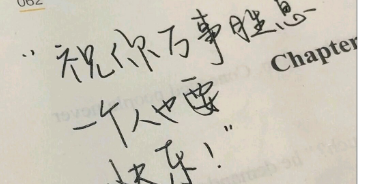 062
"祝你万事胜意
Chapter
一个人也要
快乐！"